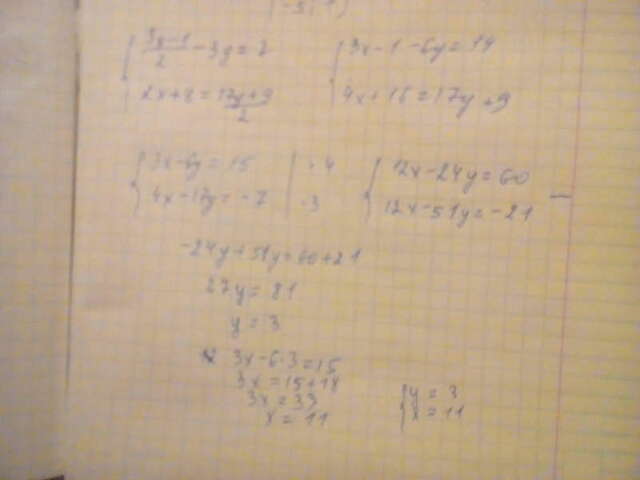 { (3x-1)/2 - 3y = 2
{ 2x+8 = (17y+9)/2
{ 3x-1-6y=14
{ 4x+16=17y+9
{ 3x-6y=15 | ·4
{ 4x-17y=-7 | ·3
{ 12x-24y=60
{ 12x-51y=-21 —
-24y+51y=60+21
27y=81
y=3
3x-6·3=15
3x=15+18
3x=33
x=11
{ y=3
{ x=11